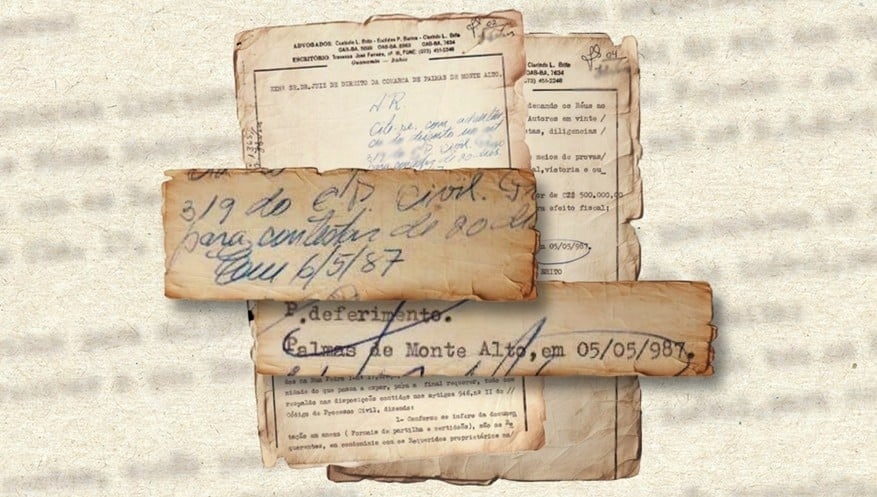 fls 03
ADVOGADOS: Clarindo L. Brito - Euclides P. Barros - Clarindo L. Brito
OAB-BA, 5699 OAB-BA, 6963 OAB-BA, 7634
ESCRITÓRIO: Travessa José Ferraz, nº FONE: (073) 451-2348
Guanambi - Bahia
EXMº SR.DR.JUIZ DE DIREITO DA COMARCA DE PALMAS DE MONTE ALTO.
Cite-se, com
319 do C.P. Civil.
para contestar de 20 dias
fls 04
Clarindo L. Brito
OAB-BA, 7634
451-2348
demando os Réus no
Autores em vinte/
tas, diligencias /
meios de provas/
al,vistoria e ou
or de CZ$ 500.000,00
efeito fiscal;
em 05/05/987.
BRITO
319 do C.P. Civil.
para contestar de 20 di
Em 6/5/87
P.deferimento.
Palmas de Monte Alto,em 05/05/987.
dos na Rua
nidade do que passa a expor, para a final requerer, tudo com
respaldo nas disposições contidas nos artigos 946,ns II do //
Código de Processo Civil, dizendo:
1- Conforme se infere da documen
tação em anexo ( Formais de partilha e certidões), são os Re
querentes, em condominio com os Requeridos proprietários na/